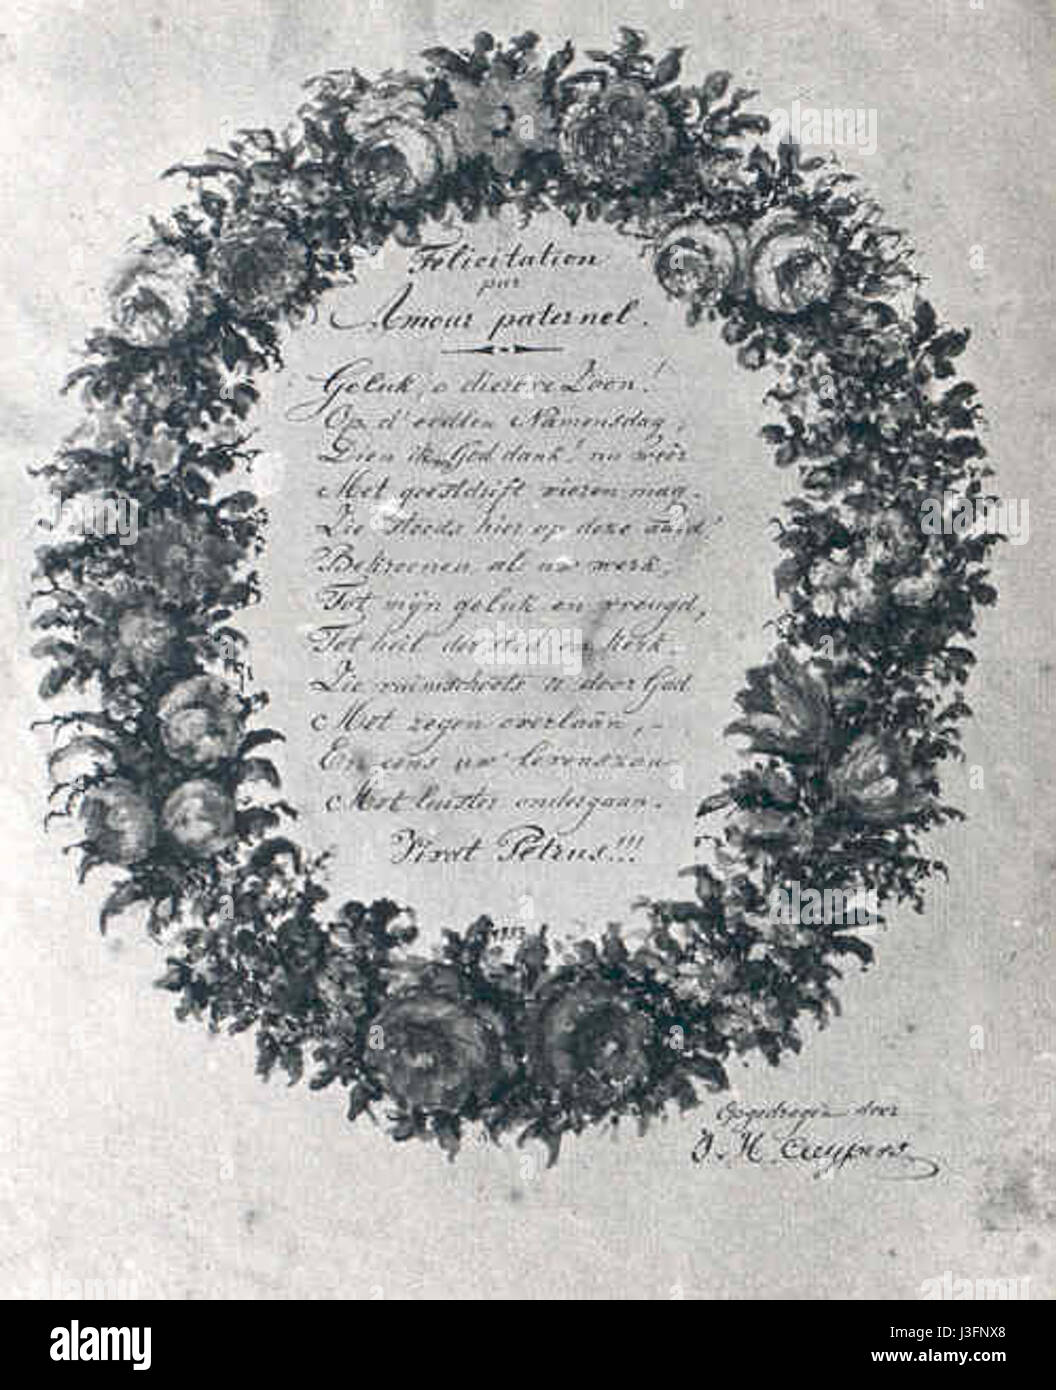 Felicitation
par
Amour paternel.
Geluk, o dierb're Zoon!
Op d' eedlen Namensdag,
Dien ik God dank! nu weêr
Met geestdrift vieren mag.
Zie steeds hier op deze aard'
Bekroonen al uw werk,
Tot mijn geluk en vreugd,
Tot heil der stad en kerk.
Zie ruimschoots U door God
Met zegen overlaân, -
En eens uw levenszon
Met luister ondergaan.
Vivat Petrus!!!
Opgedragen door
J. H. Cuypers
alamy
alamy stock photo
Image ID: J3FNX8
www.alamy.com